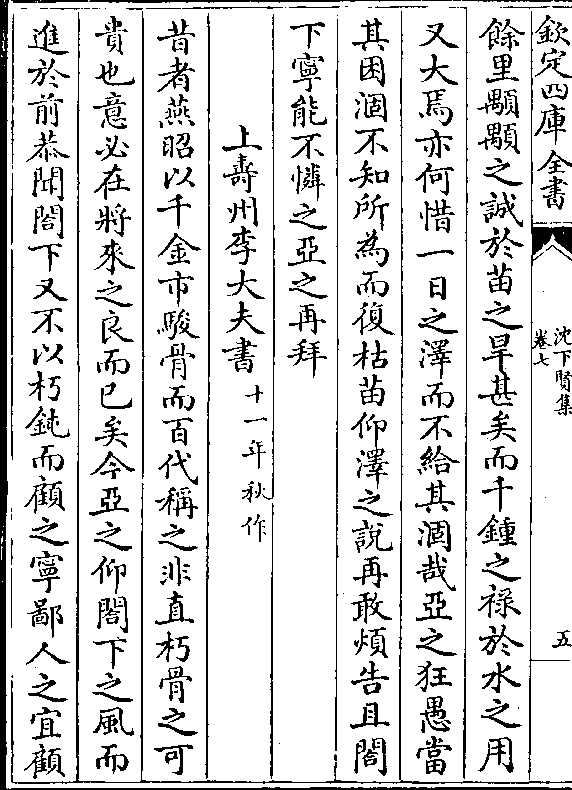 欽定四庫全書
沈下賢集
卷七
五
餘里顒顒之誠於苗之旱甚矣而千鍾之祿於水之用
又大焉亦何惜一日之澤而不給其涸哉亞之狂愚當
其困涸不知所為而復枯苗仰澤之說再敢煩告且閤
下寧能不憐之亞之再拜
上壽州李大夫書十一年秋作
昔者燕昭以千金市駿骨而百代稱之非直朽骨之可
貴也意必在將來之良而已矣今亞之仰閤下之風而
進於前恭聞閤下又不以朽鈍而顧之寧鄙人之宜顧